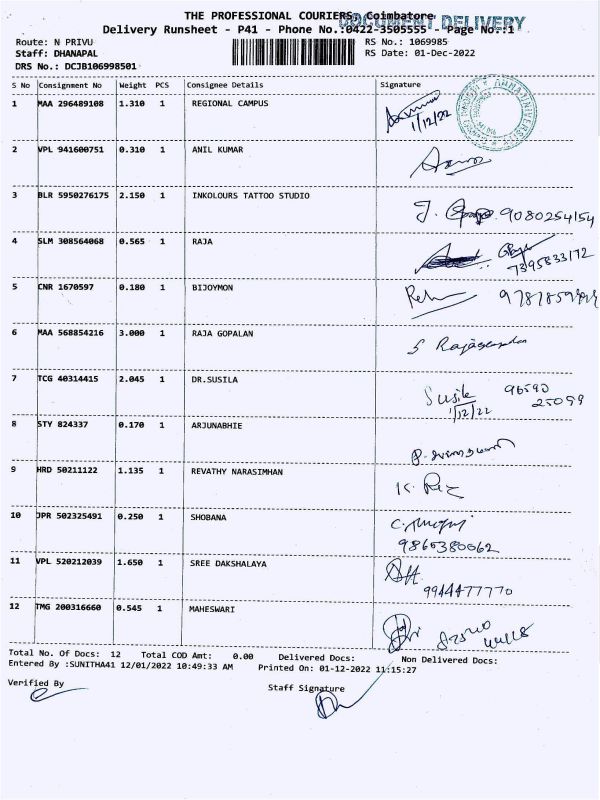 THE PROFESSIONAL COURIERS, Coimbatore
DOCUMENT DELIVERY
Delivery Runsheet - P41 - Phone No.:0422-3505555 - Page No.:1
Route: N PRIVU
RS No.: 1069985
Staff: DHANAPAL
RS Date: 01-Dec-2022
DRS No.: DCJB106998501
S No Consignment No Weight PCS Consignee Details Signature
1 MAA 296489108 1.310 1 REGIONAL CAMPUS
1/12/22
2 VPL 941600751 0.310 1 ANIL KUMAR
3 BLR 5950276175 2.150 1 INKOLOURS TATTOO STUDIO
9080254154
4 SLM 308564068 0.565 1 RAJA
7395833172
5 CNR 1670597 0.180 1 BIJOYMON
6 MAA 568854216 3.000 1 RAJA GOPALAN
7 TCG 40314415 2.045 1 DR.SUSILA
Susila 96590
1/12/22 25099
8 STY 824337 0.170 1 ARJUNABHIE
9 HRD 50211122 1.135 1 REVATHY NARASIMHAN
10 JPR 502325491 0.250 1 SHOBANA
9865380062
11 VPL 520212039 1.650 1 SREE DAKSHALAYA
9944477770
12 TMG 200316660 0.545 1 MAHESWARI
Total No. Of Docs: 12 Total COD Amt: 0.00 Delivered Docs: Non Delivered Docs:
Entered By :SUNITHA41 12/01/2022 10:49:33 AM Printed On: 01-12-2022 11:15:27
Verified By
Staff Signature